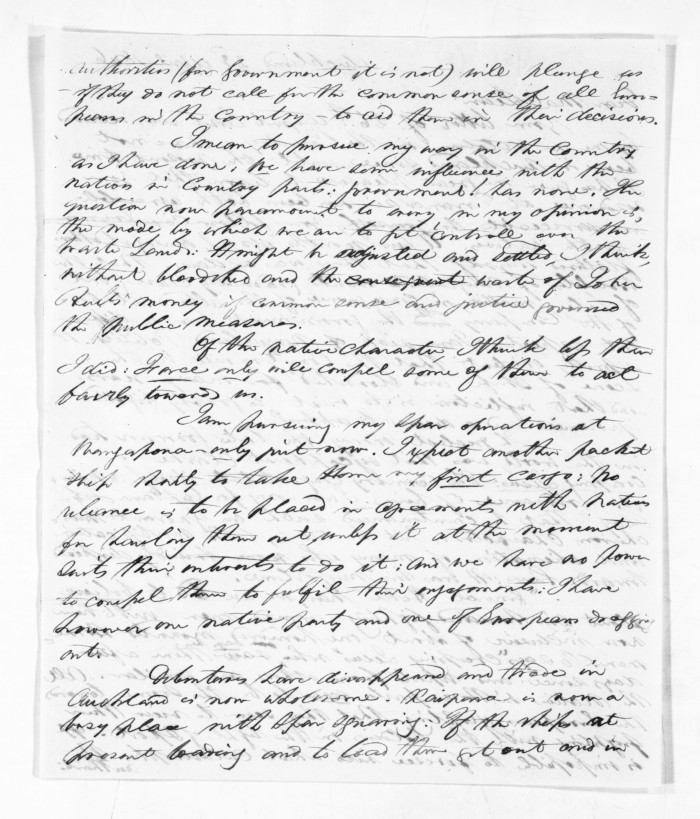 authorities (for Government it is not) will plunge us
if they do not call for the common sense of all Euro-
peans in the Country - to aid them in their decisions.
I mean to pursue my way in the Country
as I have done; We have some influence with the
natives in Country parts: government! has none. The
question now paramount to every, in my opinion is,
the mode by which we are to get controle over the
waste Lands: It might be adjusted and settled, I think,
without bloodshed and the consequent waste of John
Bull's money if common sense and justice governed
the public measures.
Of the native character, I think less than
I did: Force only will compel some of them to act
fairly towards us.
I am pursuing my Spar operations at
only just now. I expect another packet
ship shortly to take Home my first cargo: No
reliance is to be placed in agreements with Natives
for hauling them out unless it at the moment
suits their interests to do it; and we have no power
to compel them to fulfil their engagements: I have
however one native party and one of Europeans dragging
out.
Debentures have disappeared and trade in
Auckland is now wholesome. Kaipara is now a
busy place with Spar squaring: If the ships at
present loading and to load there get out and in